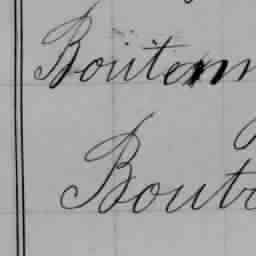 Boutem
Boute